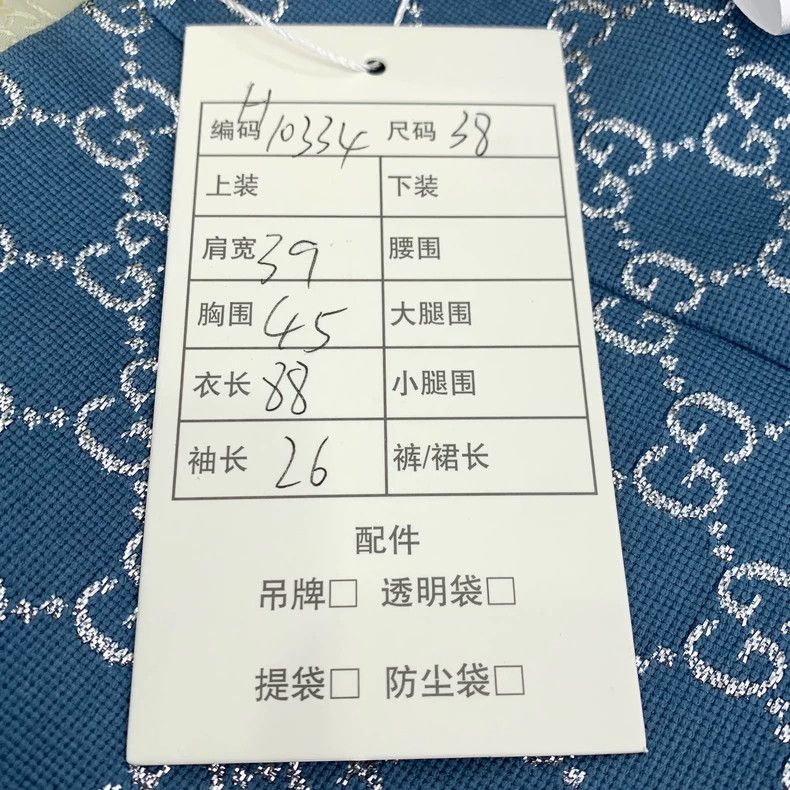 编码 H10334 尺码 38
上装 下装
肩宽 39 腰围
胸围 45 大腿围
衣长 88 小腿围
袖长 26 裤/裙长
配件
吊牌□ 透明袋□
提袋□ 防尘袋□